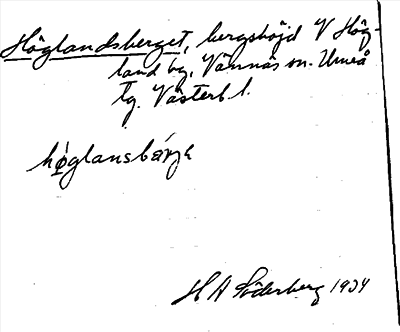 Höglandsberget, bergshöjd V Hög-
land by, Vännäs sn. Umeå
tg. Västerb l.
hǿglansbǽrjə
H A Söderberg 1934